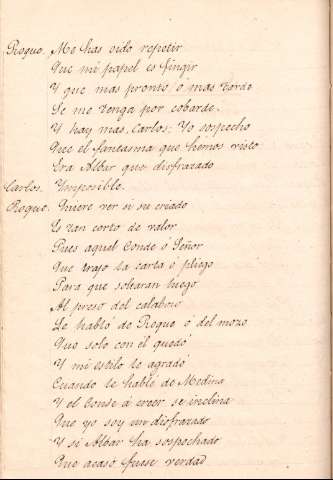 Roque. Me has oido repetir
Que mi papel es fingir
Y que mas pronto, ó mas tarde
Se me tenga por cobarde.
Y hay mas, Carlos: Yo sospecho
Que el fantasma que hemos visto
Era Albar que disfrazado
Carlos. Ymposible.
Roque. Quiere ver si su criado
Es tan corto de valor
Pues aquel Conde ó Señor
Que trajo la carta ó pliego
Para que soltaran luego
Al preso del calabozo
Le habló de Roque ó del mozo
Que solo con el quedó
Y mi estilo le agradó
Cuando le hablé de Medina
Y el Conde á creer se inclina
Que yo soy un disfrazado
Y si Albar ha sospechado
Que acaso fuese verdad